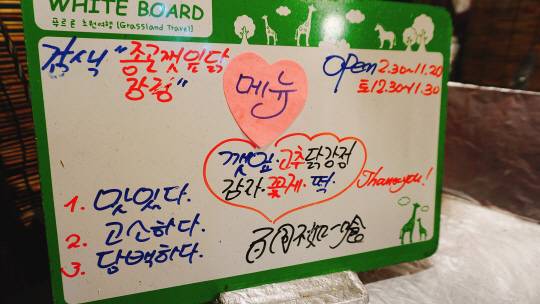 WHITE BOARD
푸르른 초원여행 (Grassland Travel)
간식 "종로깻잎닭
강정"
메뉴
open 2.30~11.20
토12.30~11.30
깻잎·고추닭강정
감자·꽃게·떡.
Thank you!
1. 맛있다.
2. 고소하다.
3. 담백하다.
百聞不如一食